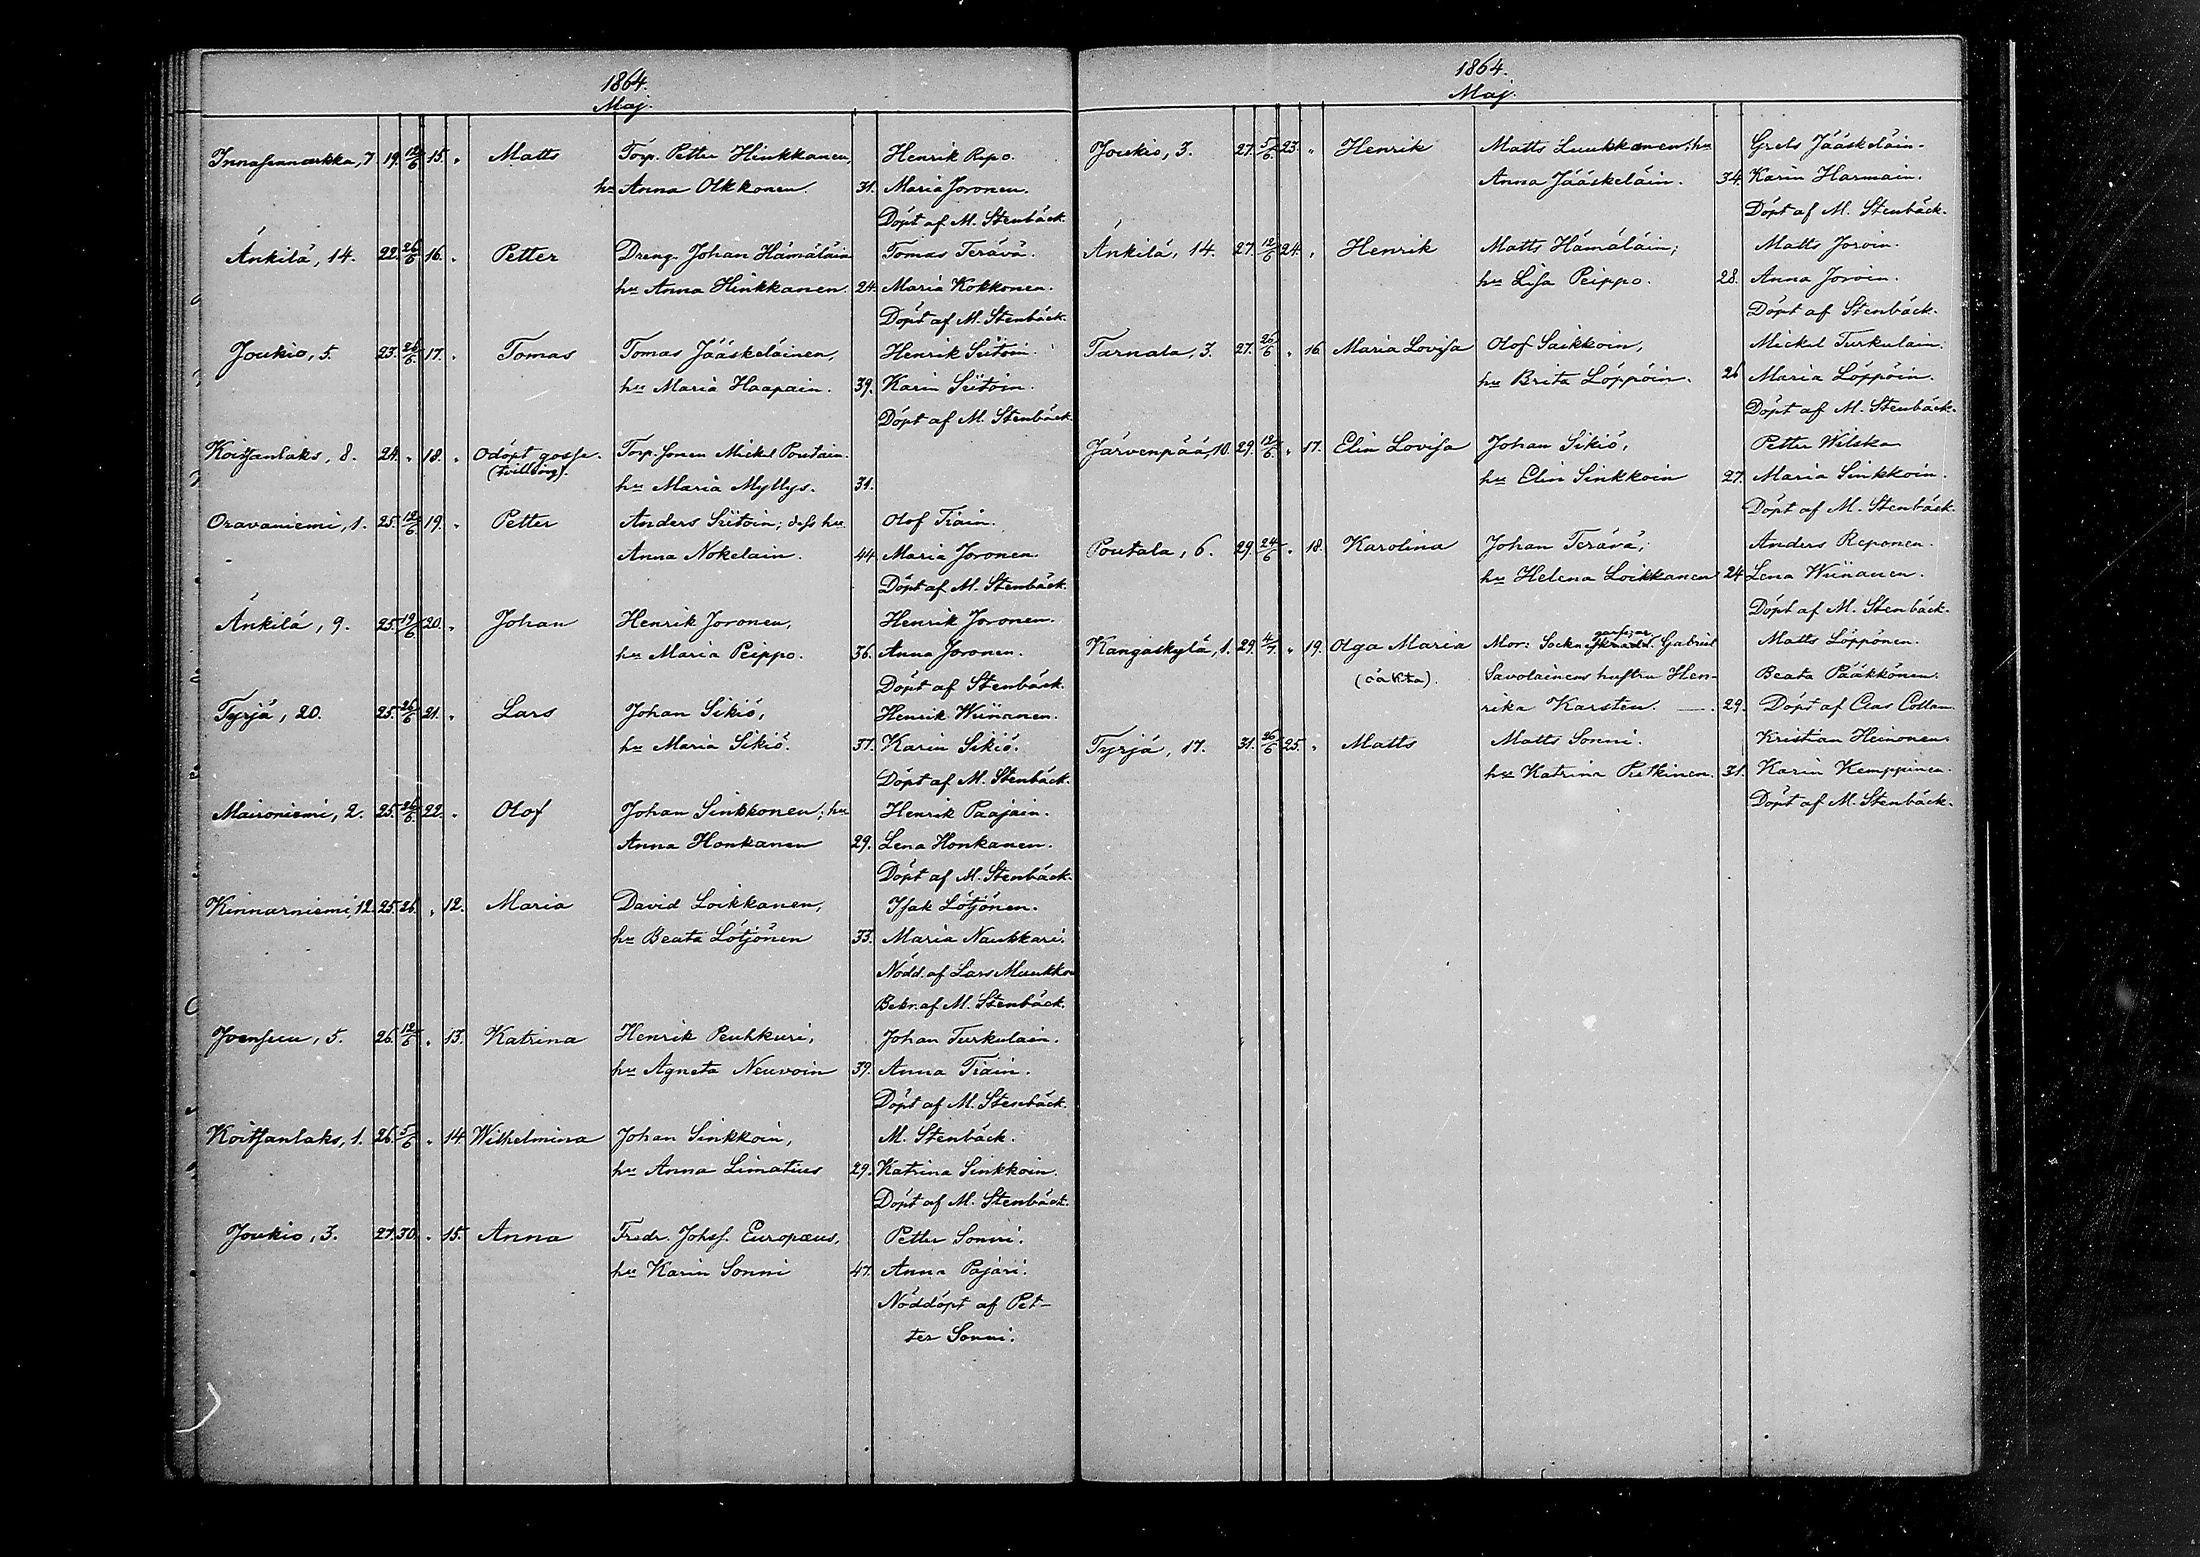 1864.
Maj.
Innasenmarkka, 7 19. 12/6 15. " Matts Torp. Petter Hinkkanen, Henrik Repo.
hu Anna Olkkonen 31. Maria Joronen.
Döpt af M. Stenbäck.
Änkilä, 14. 22. 26/6 16. " Petter Dreng. Johan Hämäläin Tomas Terävä.
hu Anna Hinkkanen 24. Maria Kokkonen.
Döpt af M. Stenbäck.
Joukio, 5. 23. 26/6 17. " Tomas Tomas Jääskeläinen, Henrik Siitoin.
hu Maria Haapain. 39. Karin Siitoin.
Döpt af M. Stenbäck
Koitsanlaks, 8. 24. " 18. " Odöpt gosse. Torp. sonen Mickel Poutain.
(tvilling). hu Maria Myllys. 31.
Oravaniemi, 1. 25. 12/6 19. " Petter Anders Siitoin; dess hu Olof Tiain.
Anna Nokelain. 44 Maria Joronen.
Döpt af M. Stenbäck.
Änkilä, 9. 25. 19/6 20. " Johan Henrik Joronen, Henrik Joronen.
hu Maria Peippo. 36. Anna Joronen.
Döpt af Stenbäck.
Tyrjä, 20. 25. 26/6 21. " Lars Johan Sikiö, Henrik Wiinanen.
hu Maria Sikiö. 37. Karin Sikiö.
Döpt af M. Stenbäck.
Maironiemi, 2. 25. 26/6 22. " Olof Johan Sinkkonen; hu Henrik Paajain.
Anna Honkanen 29. Lena Honkanen.
Döpt af M. Stenbäck.
Kinnarniemi, 12. 25. 26. " 12. Maria David Loikkanen, Isak Lötjönen.
hu Beata Lötjönen 33. Maria Naukkari.
Nödd. af Lars Muukko
Bekr. af M. Stenbäck.
Joensuu, 5. 26. 12/6 " 13. Katrina Henrik Peuhkuri, Johan Turkulain.
hu Agneta Neuvoin 39. Anna Tiain.
Döpt af M. Stenbäck.
Koitsanlaks, 1. 26. 5/6 " 14. Wilhelmina Johan Sinkkoin, M. Stenbäck.
hu Anna Limatius 29. Katrina Sinkkoin.
Döpt af M. Stenbäck.
Joukio, 3. 27. 30. " 15. Anna Fredr. Johss. Europæus, Petter Sonni.
hu Karin Sonni 47. Anna Pajari.
Nöddöpt af Pet-
ter Sonni.
1864.
Maj.
Joukio, 3. 27. 5/6 23. " Henrik Matts Luukkanen; hu Grels Jääskeläin.
Anna Jääskeläin. 34. Karin Harmain.
Döpt af M. Stenbäck.
Änkilä, 14. 27. 12/6 24. " Henrik Matts Hämäläin; Matts Joroin.
hu Lisa Peippo. 28. Anna Joroin.
Döpt af Stenbäck.
Tarnala, 3. 27. 26/6 " 16. Maria Lovisa Olof Saikkoin, Mickel Turkulain.
hu Brita Löppöin. 26 Maria Löppöin.
Döpt af M. Stenbäck.
Järvenpää, 10. 29. 12/6 " 17. Elin Lovisa Johan Sikiö, Petter Wilska
hu Elin Sinkkoin 27. Maria Sinkkoin.
Döpt af M. Stenbäck.
Poutala, 6. 29. 24/6 " 18. Karolina Johan Terävä; Anders Reponen.
hu Helena Loikkanen 24 Lena Wiinanen.
Döpt af M. Stenbäck.
Kangaskylä, 1. 29. 4/7. " 19. Olga Maria Mor: Sockne Gabriel Matts Löppönen.
(oäkta). Savolainens hustru Hen- Beata Pääkkönen.
rika Karsten. — 29. Döpt af Clas Collan.
Tyrjä, 17. 31. 26/6 25. " Matts Matts Sonni. Kristian Heinonen.
hu Katrina Pietkinen. 31. Karin Kemppinen.
Döpt af M. Stenbäck.